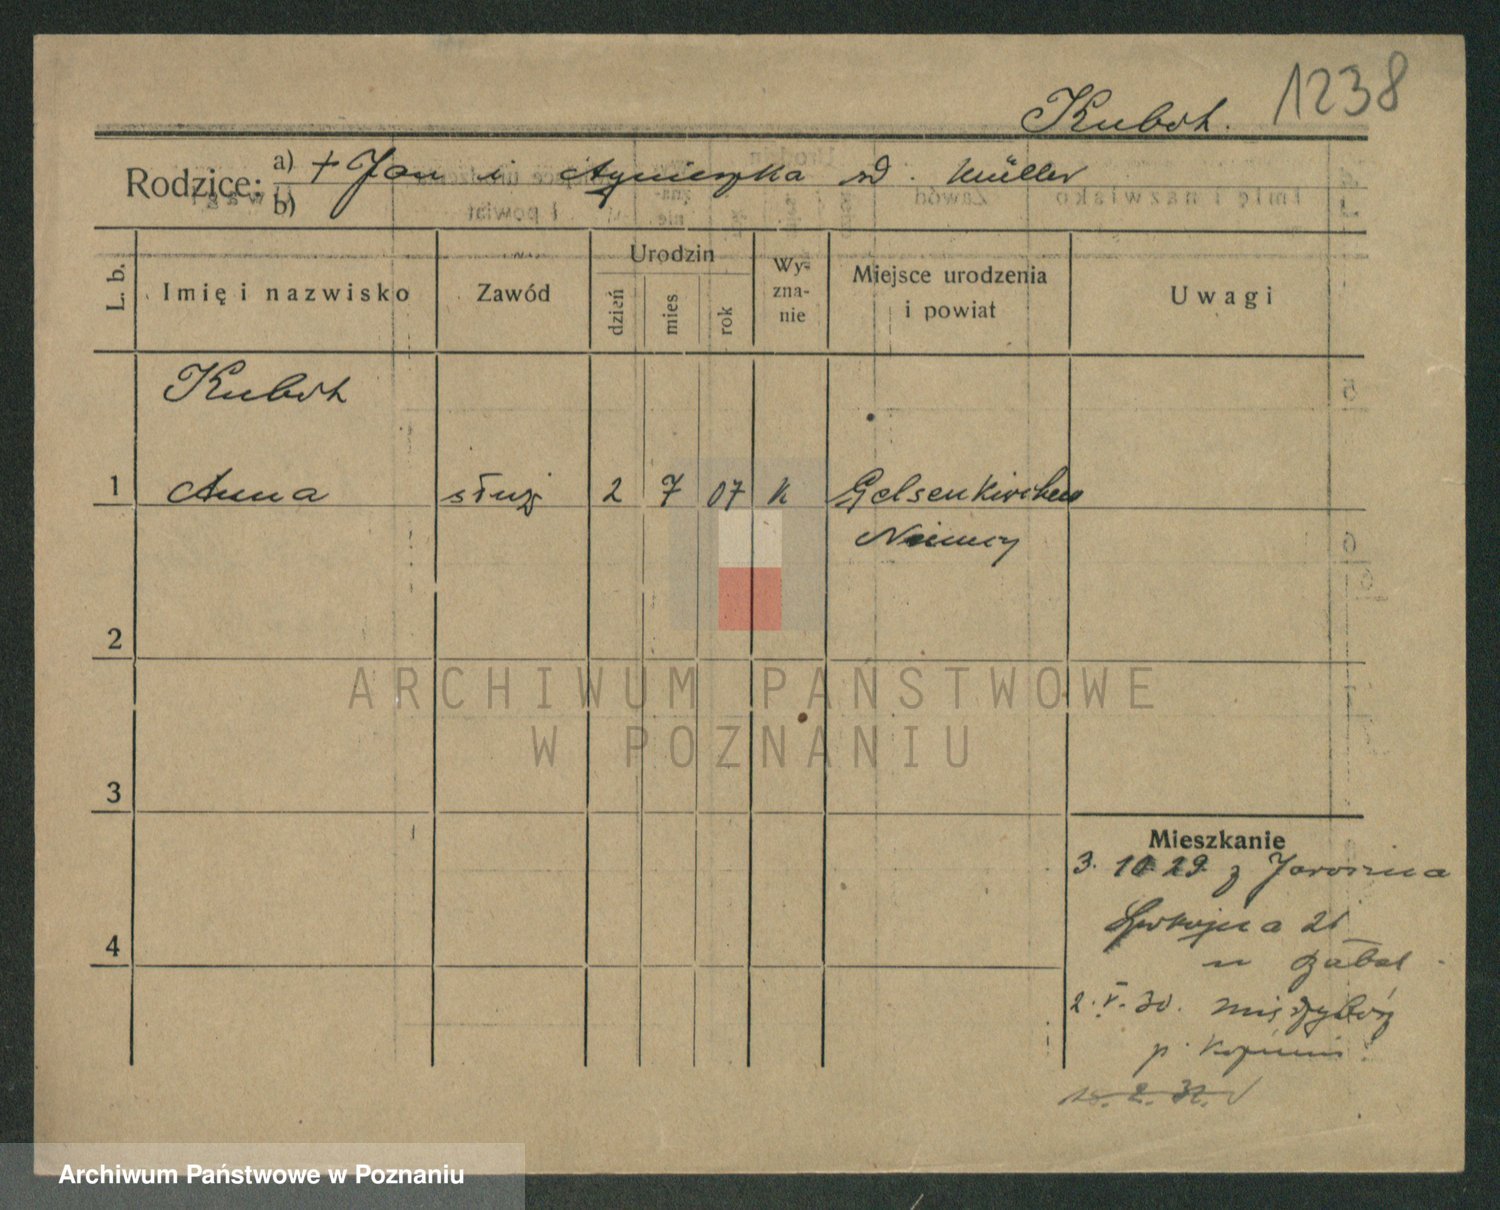 1238
Kuboh.
Rodzice: a) + Jan i Agnieszka zd. Müller
b)
L. b. Imię i nazwisko Zawód Urodzin dzień mies rok Wyznanie Miejsce urodzenia i powiat Uwagi
Kuboh
1 Anna służ 2 7 07 k Gelsenkirchen
Niemcy
2
ARCHIWUM PAŃSTWOWE
W POZNANIU
3
Mieszkanie
3. 10 29. z Jarocina
21
4
u
2. V. 30. Międzybórz
p.
2. 32.
Archiwum Państwowe w Poznaniu